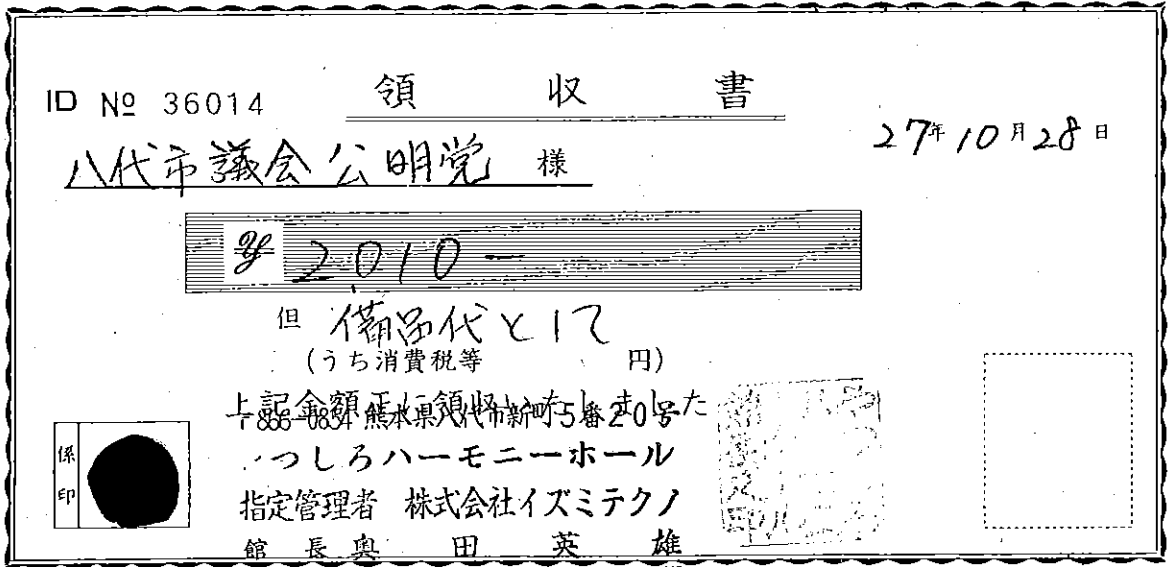 ID № 36014 領収書
27年10月28日
八代市議会公明党 様
¥ 2,010-
但 備品代として
(うち消費税等 円)
上記金額正に領収いたしました
〒866-0854 熊本県八代市新町5番20号
つしろハーモニーホール
指定管理者 株式会社イズミテクノ
館長 奥田英雄
係印